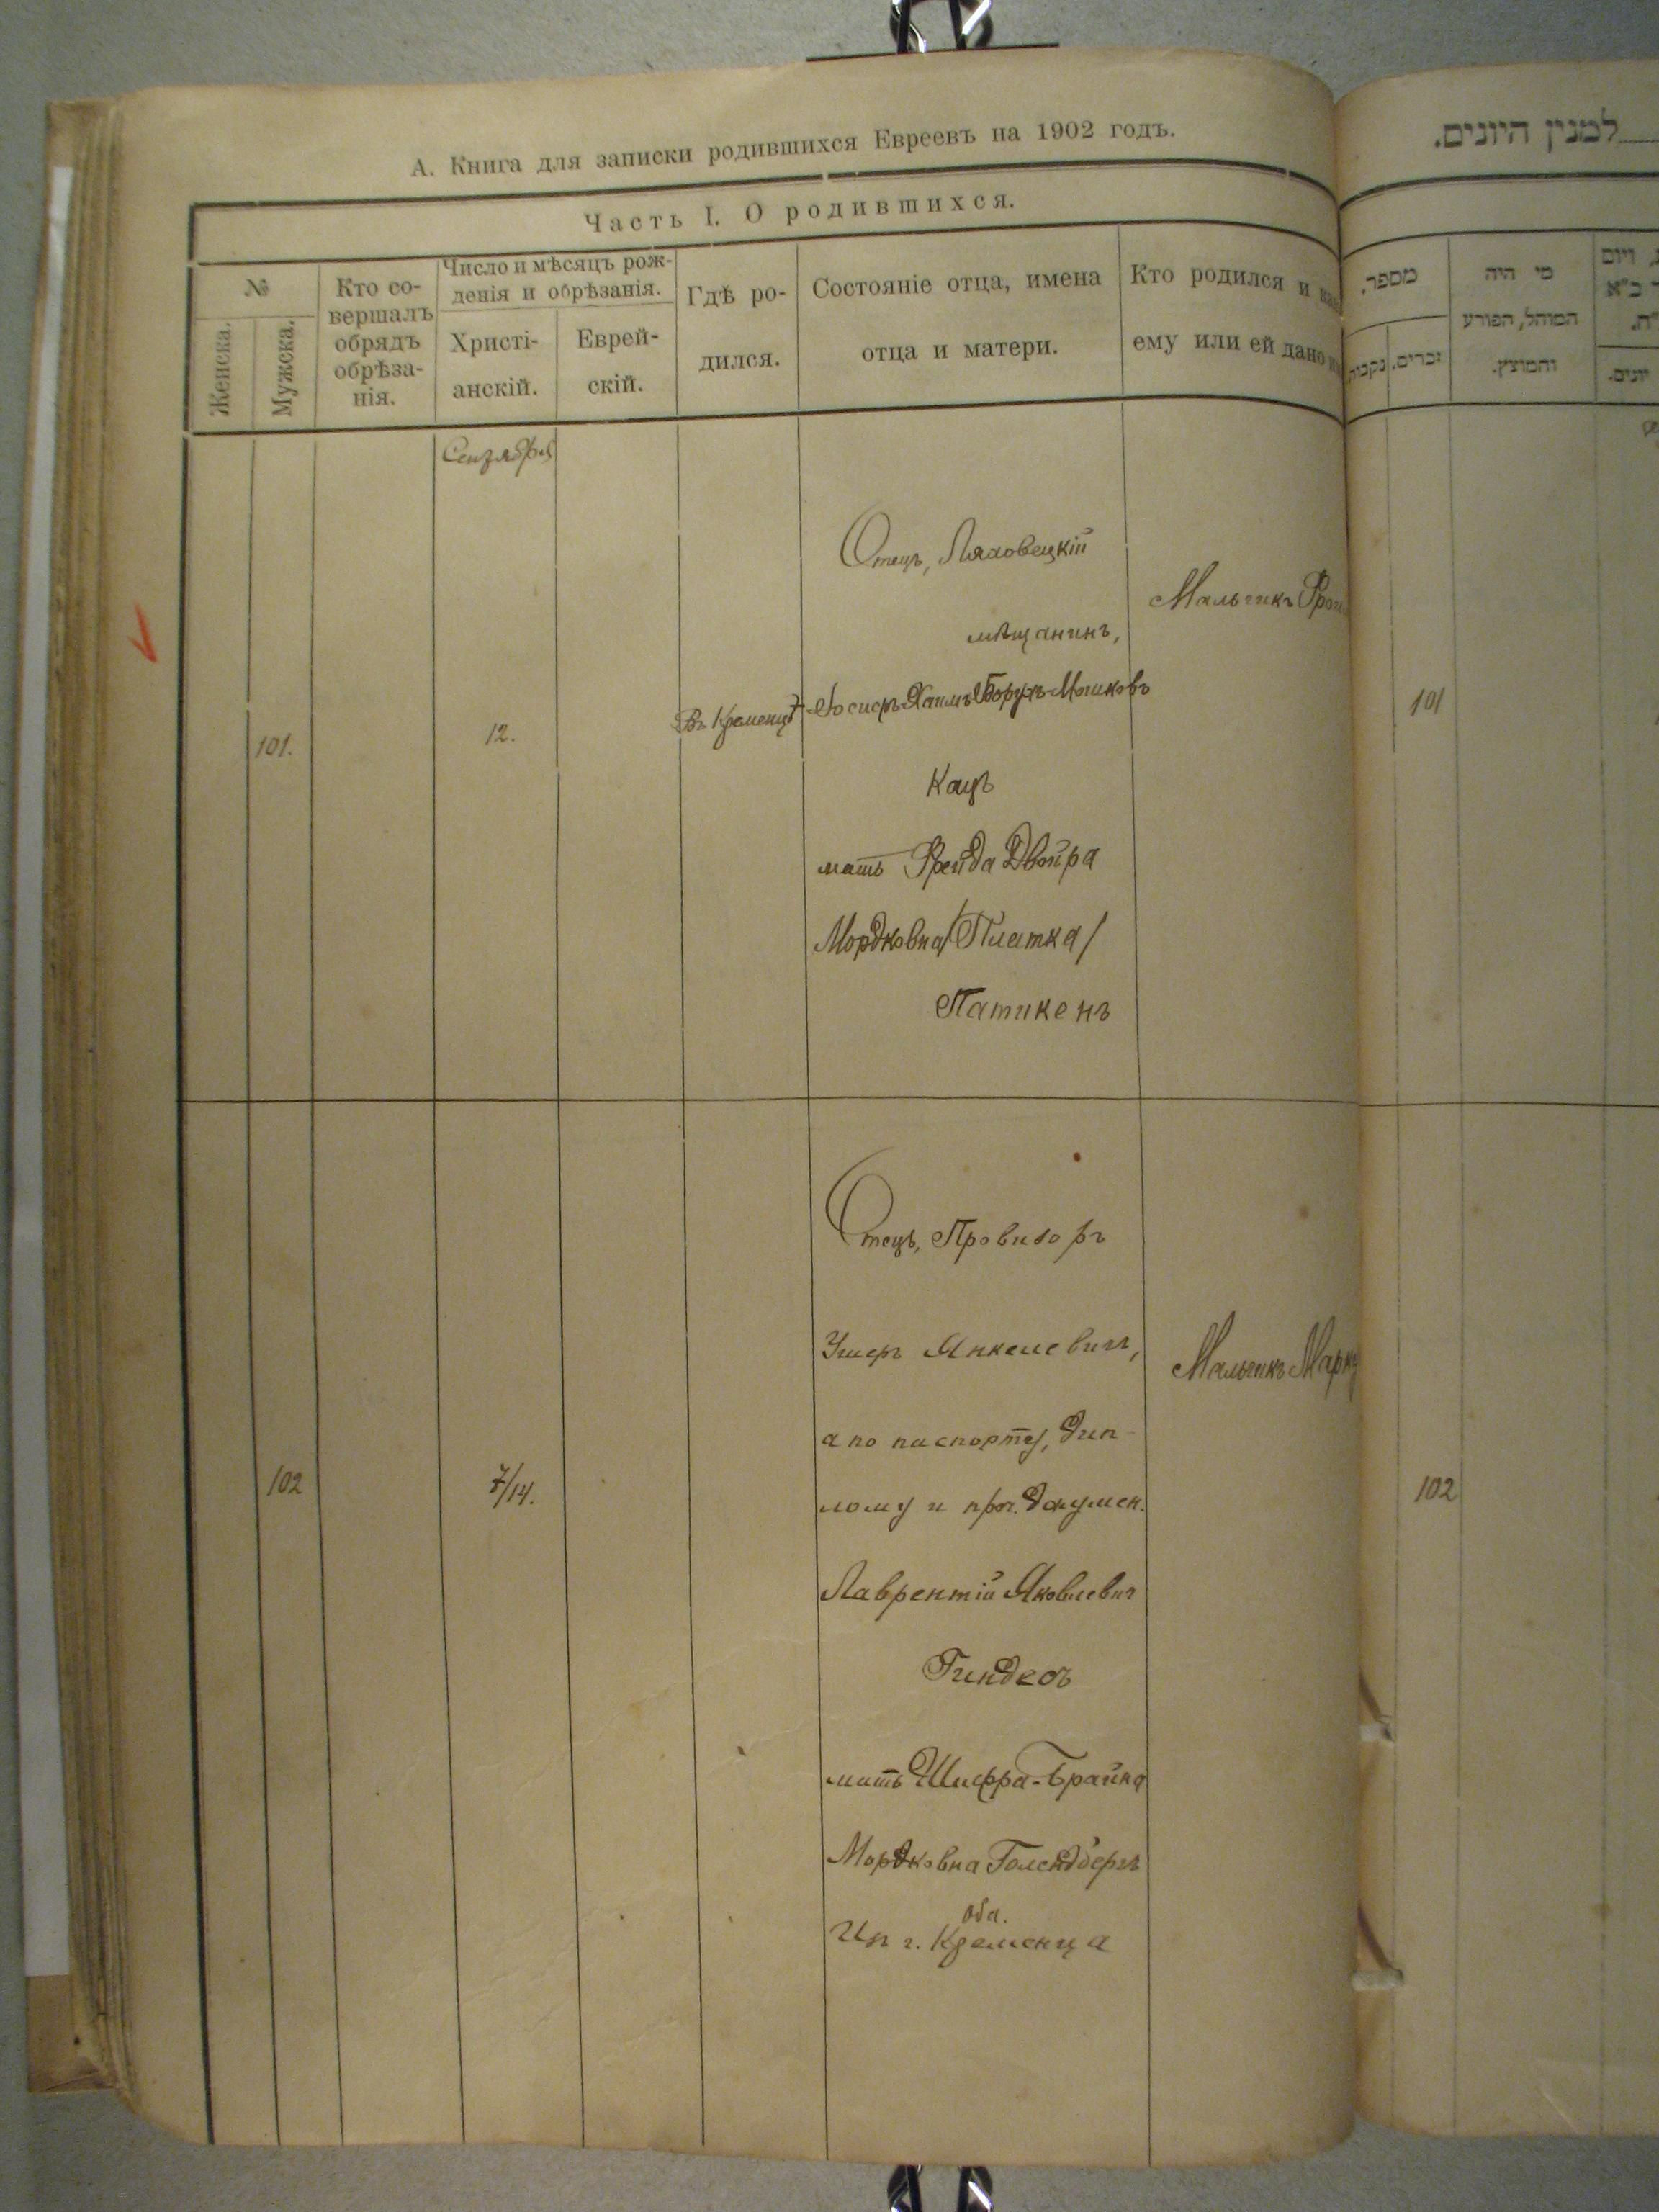 А. Книга для записки родившихся Евреевъ на 1902 годъ.
Часть I. О родившихся.
№
Женска.
Мужска.
Кто со-
вершалъ
обрядъ
обрѣза-
нія.
Число и мѣсяцъ рож-
денія и обрѣзанія.
Христі-
анскій.
Еврей-
скій.
Гдѣ ро-
дился.
Состояніе отца, имена
отца и матери.
Кто родился и
ему или ей дано
Сентября
101.
12.
Въ Кременцѣ
Отецъ, Ляховецкій
мѣщанинъ,
Хаимъ Борухъ Мошковъ
Кацъ
мать Фрейда Двойра
Мордковна /Платка/
Патикенъ
Мальчикъ
102
7/14.
Отецъ, Провизоръ
Ушеръ Янкелевичъ,
а по паспорту, дип-
лому и проч. докумен.
Лаврентій Яковлевич
Гиндесъ
мать Шифра-Брайна
Мордковна
оба.
Из г. Кременца
Мальчикъ
למנין היונים.
מספר.
זכרים.
נקבות.
מי היה
המוהל, הפורע
והמוצץ.
ויום
יונים.
101
102